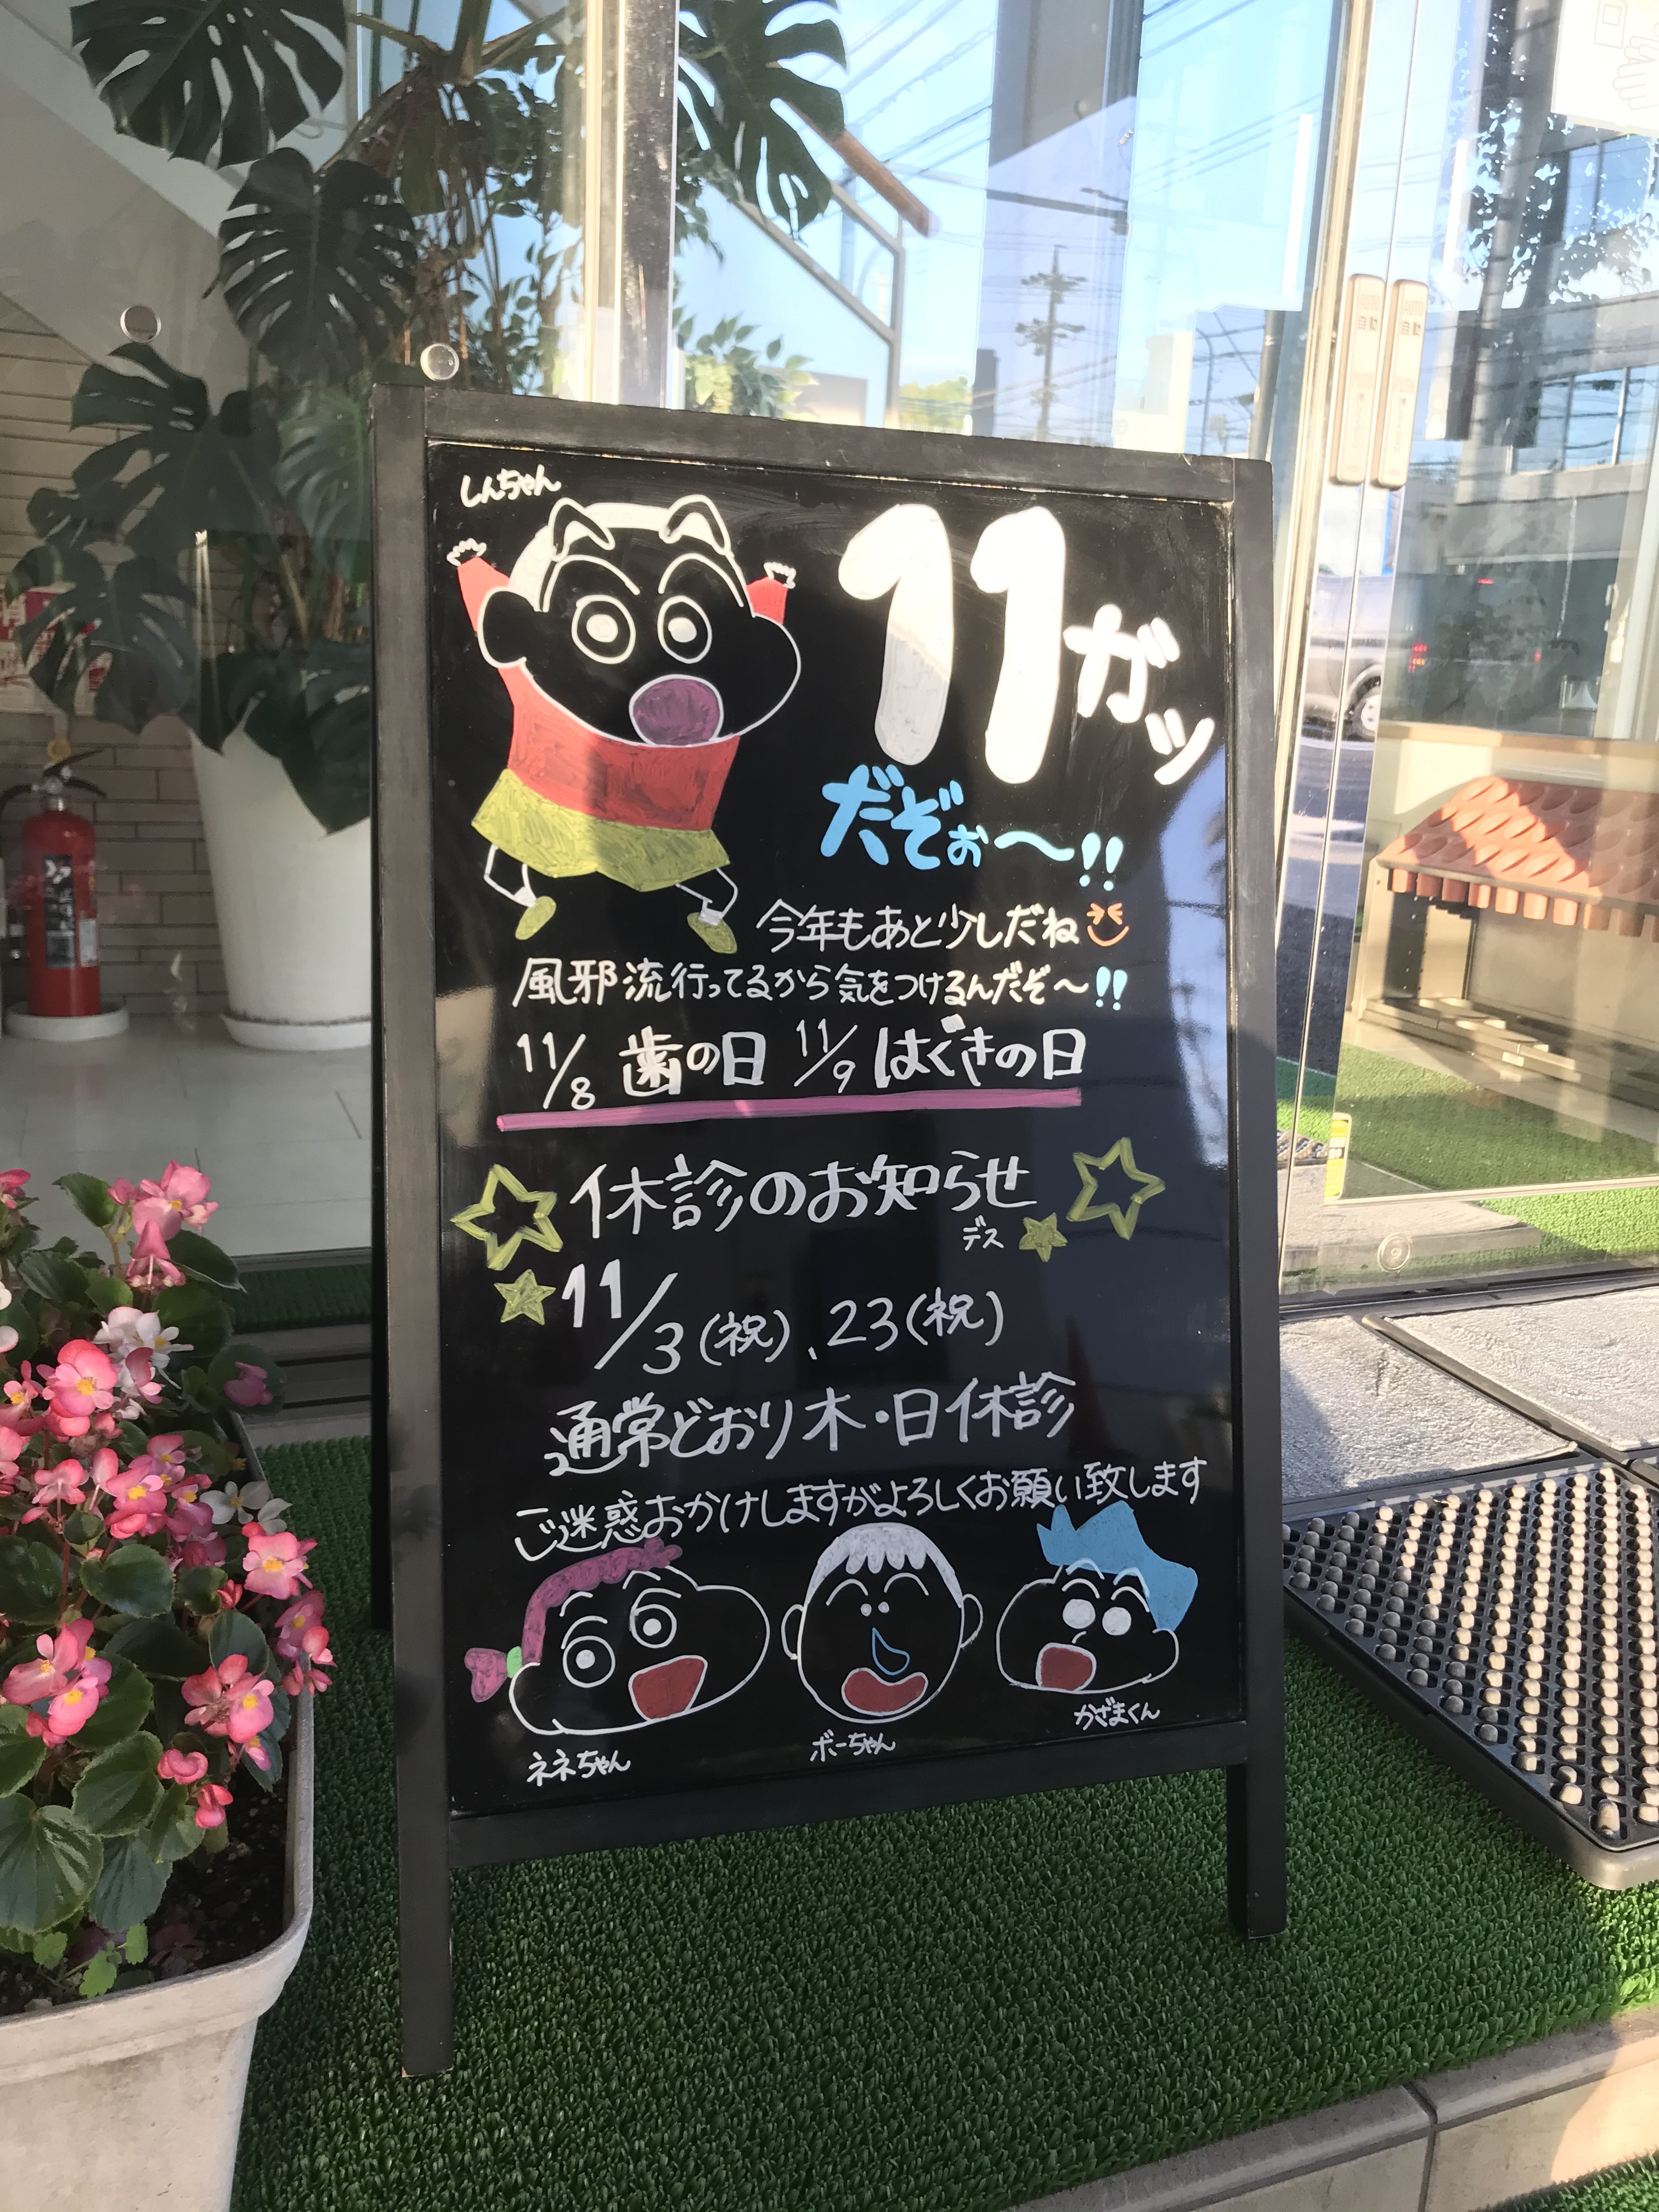 しんちゃん
11ガッ
だぞぉ〜!!
今年もあと少しだね
風邪流行ってるから気をつけるんだぞ〜!!
11/8 歯の日 11/9 はぐきの日
休診のお知らせ
デス
11/3(祝)、23(祝)
通常どおり木・日休診
ご迷惑おかけしますがよろしくお願い致します
ネネちゃん
ボーちゃん
かざまくん
AUTO
自動
AUTO
自動